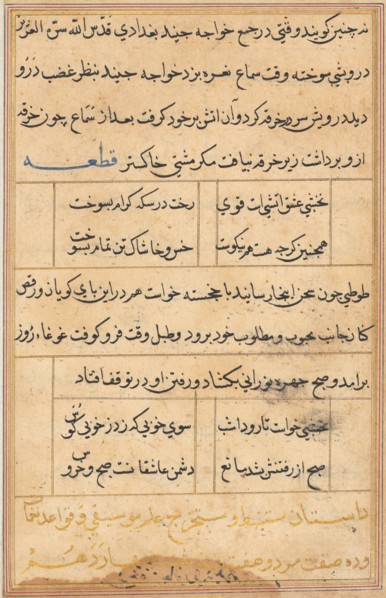 نه چنین کویند وقتی در جمع خواجه جنید بغدادی قدّس الله سرّه العزیز
درویشی سوخته وقت سماع نعره بزد خواجه جنید بنظر غضب دَرُو
دید درویش سر در خرقه کرد و آن اتش بر خود کرفت بعد از سَماع چون خرقه
ازو برداشت زیر خرقه نیافت مکر مشتی خاکستر قطعه
نخشبی عشق اتشی است قوی رخت در سکه کرام بسوخت
همچنین کرچه هست هم نیکوست خس و خاشاک تن تمام بسوخت
طوطی چون سخن اینجا رسانید با خجسته خواست پای کوبان و رقص
کنان جانب محبوب و مطلوب خود برود و طبل وقت فرو کوفت غوغاء روز
برامد و صبح چهره نورانی بکشاد و رفتن او در توقف افتاد
نخشبی خواست تا رود امشب سوی خوبی که زد ز خوبی کوس
صبح از رفتنش بشد مانع دشمن عاشقانست صبح و خروس
داستان مستنبط و مستخرج علم موسیقی و قواعد
و ده صفت مرد و هفت